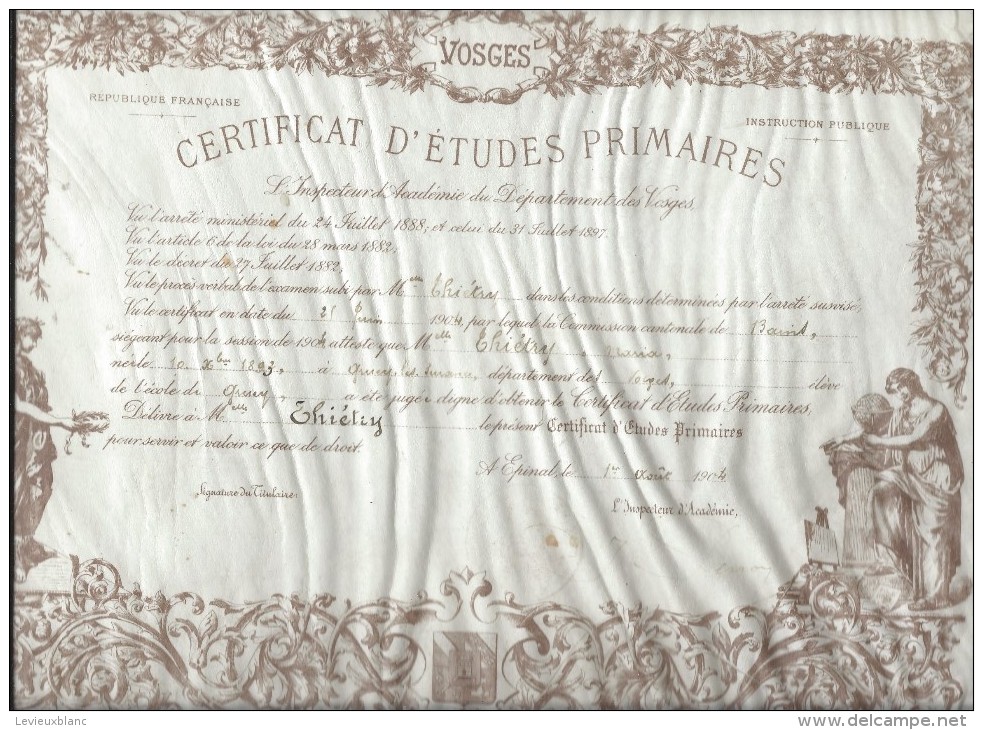 VOSGES
REPUBLIQUE FRANÇAISE
INSTRUCTION PUBLIQUE
CERTIFICAT D'ÉTUDES PRIMAIRES
L'Inspecteur d'Académie du Département des Vosges
Vu l'arrêté ministériel du 24 Juillet 1888, et celui du 31 Juillet 1897.
Vu l'article 6 de la loi du 28 mars 1882,
Vu le décret du 27 Juillet 1882,
Vu le procès verbal de l'examen subi par Melle Thiétry dans les conditions déterminées par l'arrêté susvisé,
Vu le certificat en date du Juin 1904, par lequel la Commission cantonale de
siégeant pour la session de 1904 atteste que Melle Thiétry, Maria,
né le 10 Xbre 1893, à département des Vosges, élève
de l'école de Gruey, a été jugé digne d'obtenir le Certificat d'Études Primaires,
Délivré à Melle Thiétry le présent Certificat d'Études Primaires
pour servir et valoir ce que de droit.
A Epinal, le 1er Août 1904
Signature du Titulaire:
L'Inspecteur d'Académie,
Levieuxblanc
www.delcampe.net